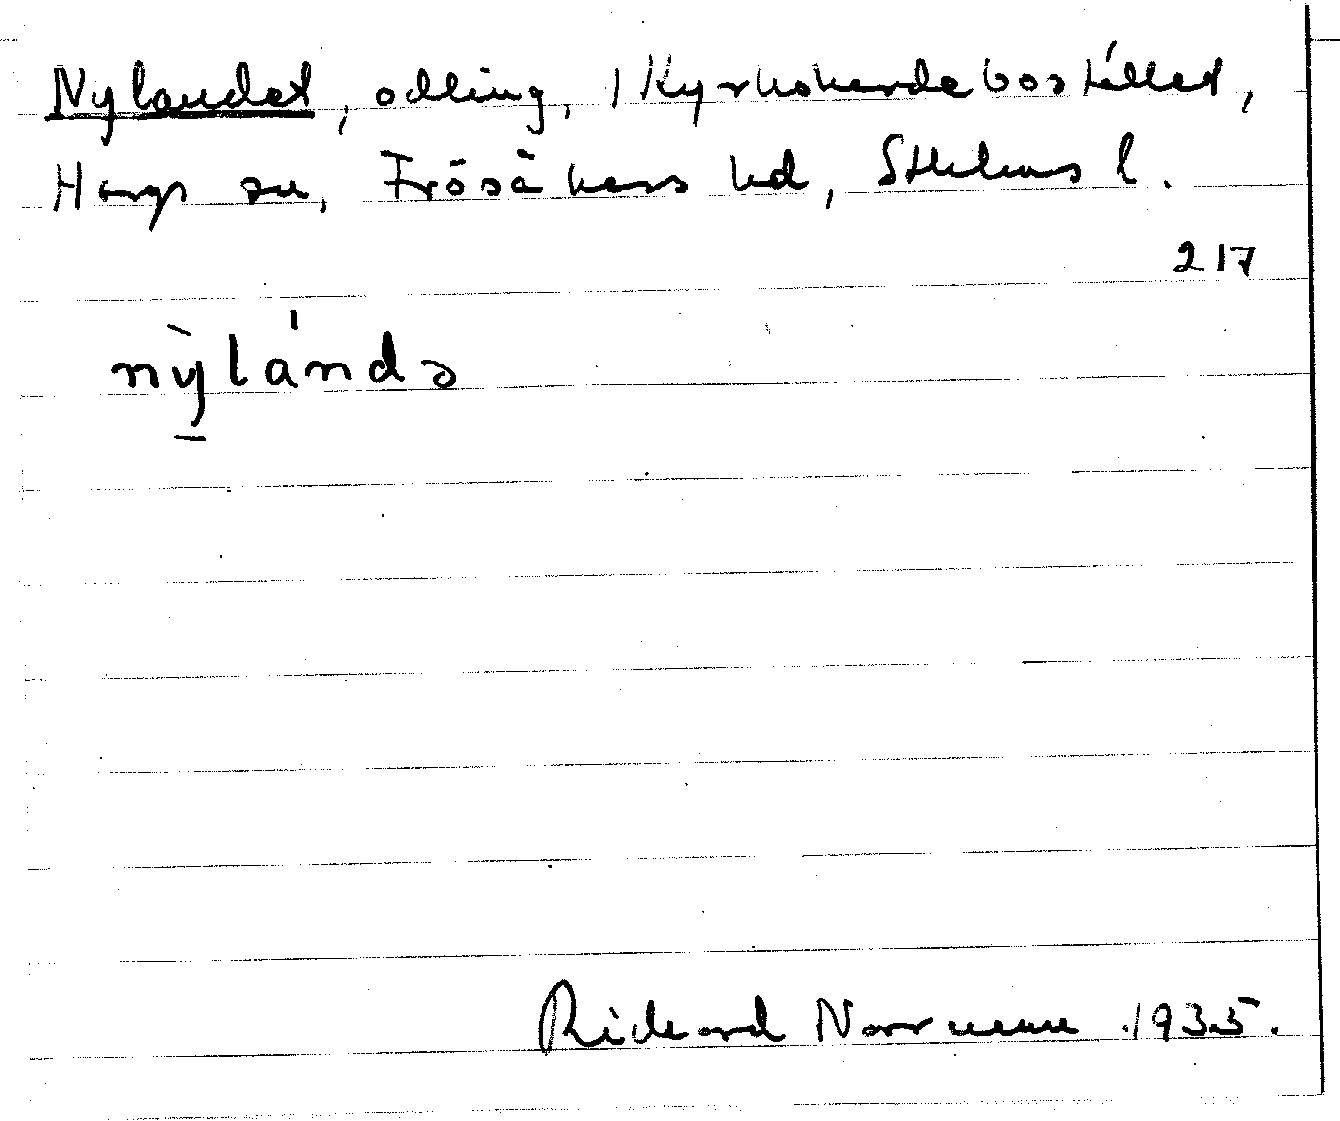 Nylandet, odling, i Kyrkoherdebostället,
Hargs sn, Frösåkers hd, Sthlms l.
217
nỳlándə
Rickard Norrman 1935.